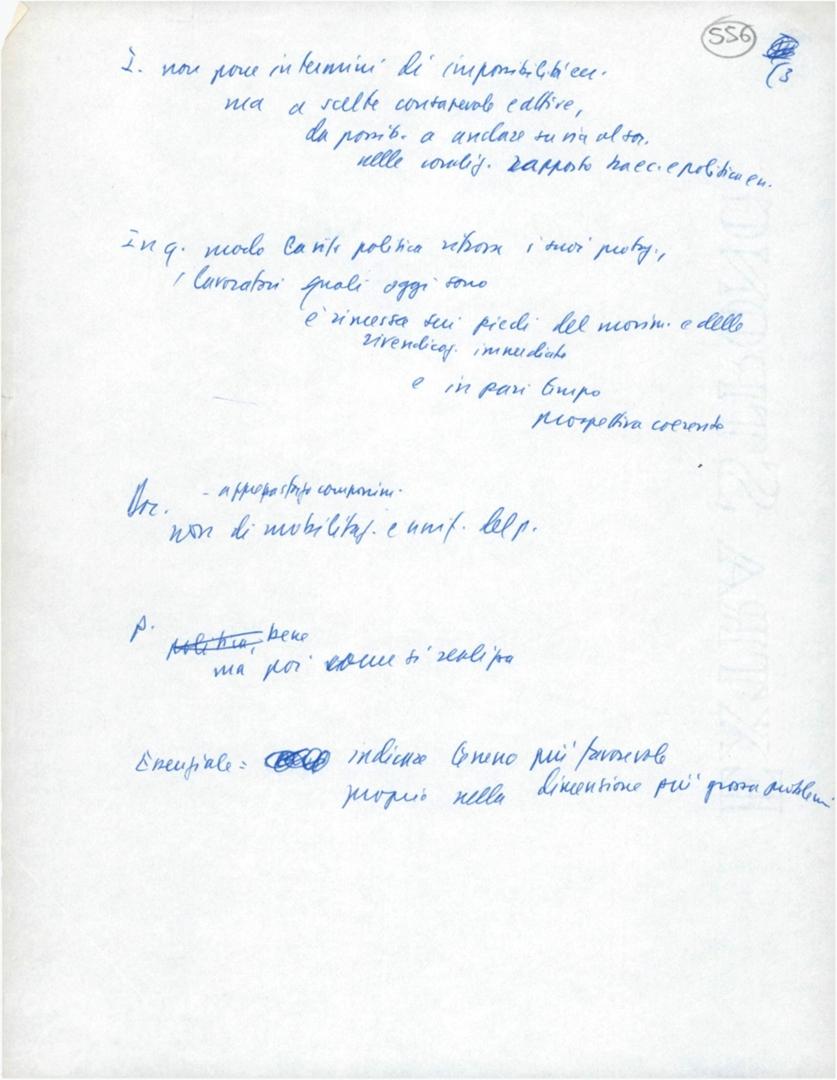 556
(3
I. non pone in termini di impossibilità ec.
ma a scelte consapevole e attive,
da possib. a andare su via al soc.
nelle condiz. rapporto tra ec. e politica en.
In q. modo la vita politica ritrova i suoi protag.,
i lavoratori quali oggi sono
è rimessa sui piedi del movim. e delle
rivendicaz. immediate
e in pari tempo
prospettiva coerente
Doc. -
non di mobilitaz. e unif. del p.
p. politica, bene
ma poi come si realizza
Essenziale = indicare terreno più favorevole
proprio nella dimensione più grossa problemi